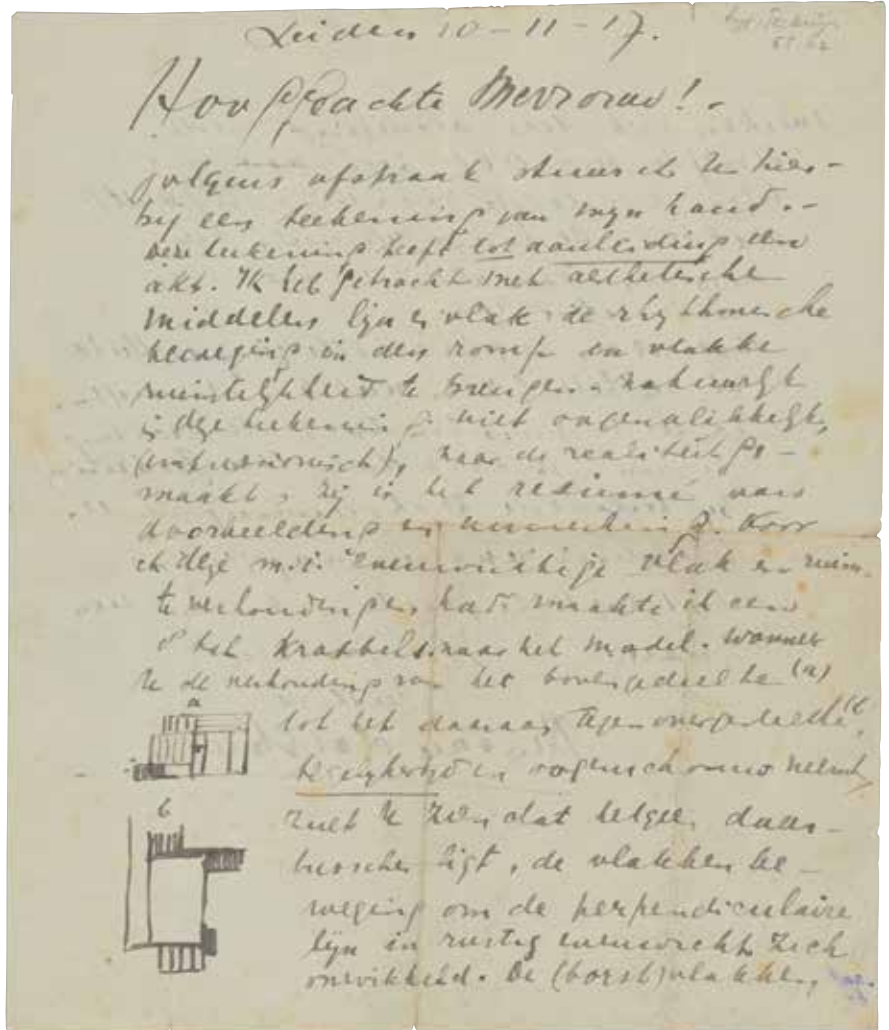 Leiden 10-11-17.
Hooggeachte Mevrouw!.
Volgens afspraak stuur ik U hier-
bij een teekening van mijn hand.-
Deze teekening heeft tot aanleiding een
akt. Ik heb getracht met aesthetische
middelen lijn en vlak de rhythmische
beweging in den romp in vlakke
ruimtelijkheid te brengen. Natuurlijk
is deze teekening niet oogenblikkelijk,
(impressionisch), naar de realiteit ge-
maakt, zij is het resumé van
doorbeelding en Voor
ik deze m.i. evenwichtige vlak en ruim-
te verhoudingen had, maakte ik een
krabbels naar het model. Wanneer
U de verhouding van het bovengedeelte (a)
a
tot het daaraan tegenovergestelde (b)
in oogenschouw neemt,
b
zult U zien, dat hetgeen daar-
tusschen ligt, de vlakken be-
weging om de perpendiculaire
lijn in rustig evenwicht zich
ontwikkeld. De (borst)vlakken,